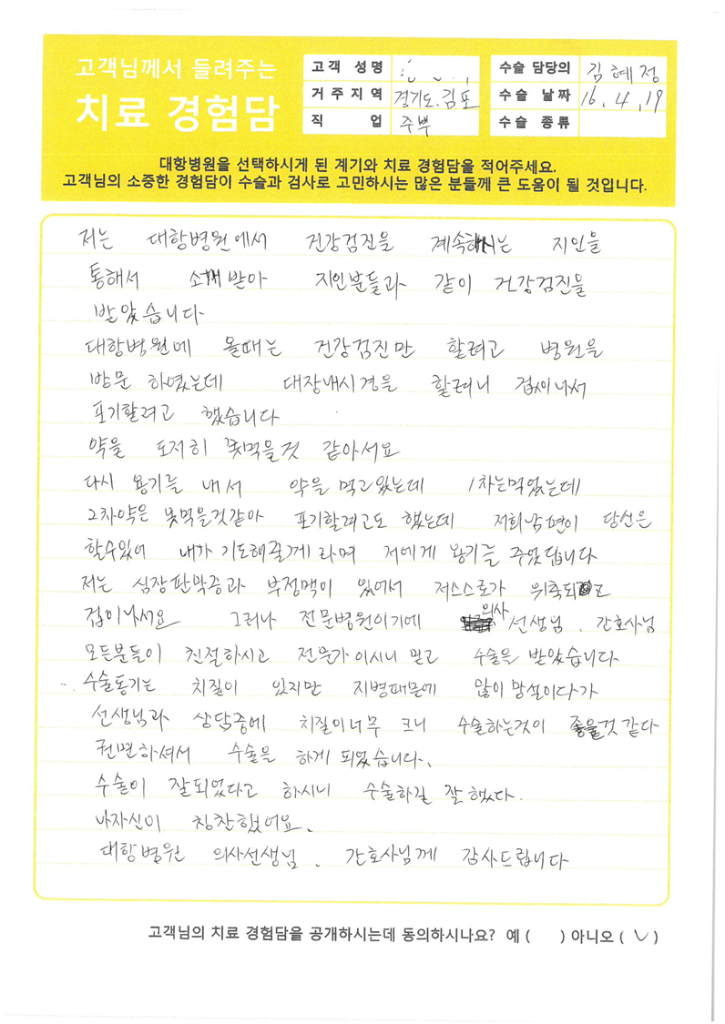 고객님께서 들려주는
치료 경험담
고객 성명
거주지역 경기도. 김포
직 업 주부
수술 담당의 김혜정
수술 날짜 16. 4. 19
수술 종류
대항병원을 선택하시게 된 계기와 치료 경험담을 적어주세요.
고객님의 소중한 경험담이 수술과 검사로 고민하시는 많은 분들께 큰 도움이 될 것입니다.
저는 대항병원에서 건강검진을 계속하시는 지인을
통해서 소개받아 지인분들과 같이 건강검진을
받았습니다
대항병원에 올때는 건강검진만 할려고 병원을
방문 하였는데 대장내시경을 할려니 겁이나서
포기할려고 했습니다
약을 도저히 못먹을것 같아서요
다시 용기를 내서 약을 먹고있는데 1차는먹었는데
2차약은 못먹을것같아 포기할려고도 했는데 저희남편이 당신은
할수있어 내가 기도해줄께 라며 저에게 용기를 주었답니다
저는 심장판막증과 부정맥이 있어서 저스스로가 위축되고
겁이나서요 그러나 전문병원이기에 의사 선생님. 간호사님
모든분들이 친절하시고 전문가이시니 믿고 수술을 받았습니다
수술동기는 치질이 있지만 지병때문에 많이 망설이다가
선생님과 상담중에 치질이너무 크니 수술하는것이 좋을것 같다
권변하셔서 수술을 하게 되었습니다.
수술이 잘되었다고 하시니 수술하길 잘했다.
나자신이 칭찬했어요.
대항병원 의사선생님. 간호사님께 감사드립니다
고객님의 치료 경험담을 공개하시는데 동의하시나요? 예 ( ) 아니오 ( ✓ )